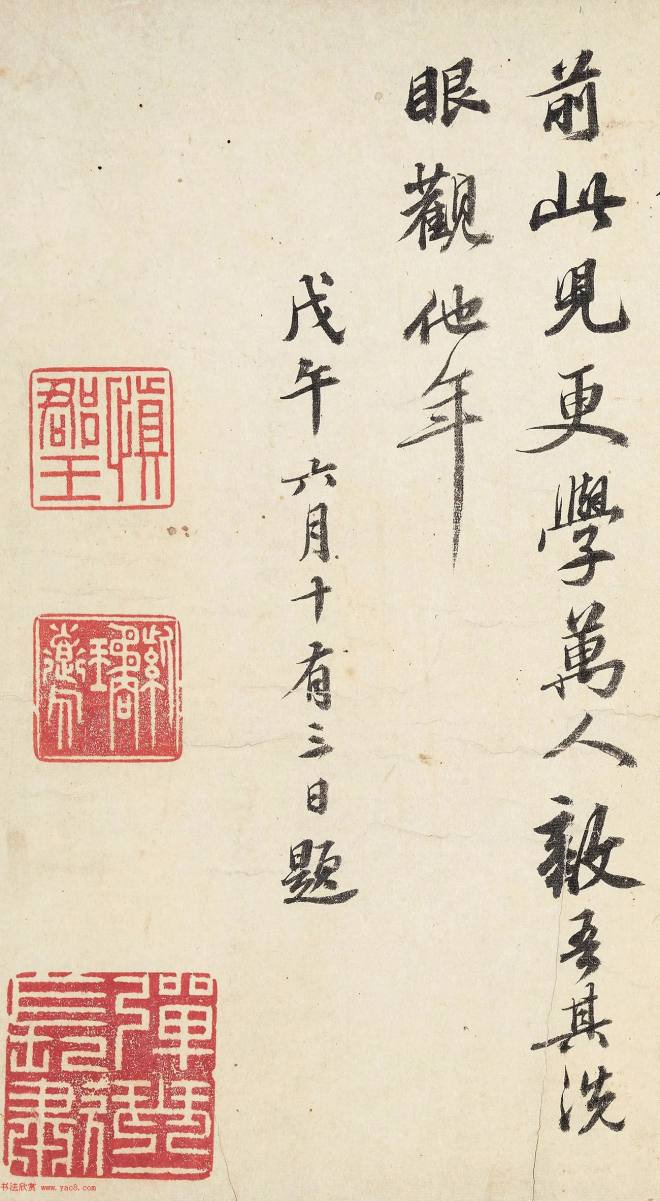 前此見更學萬人敵吾其洗
眼觀他年
戊午六月十有三日題
慎郡王
书法欣赏 www.yac8.com